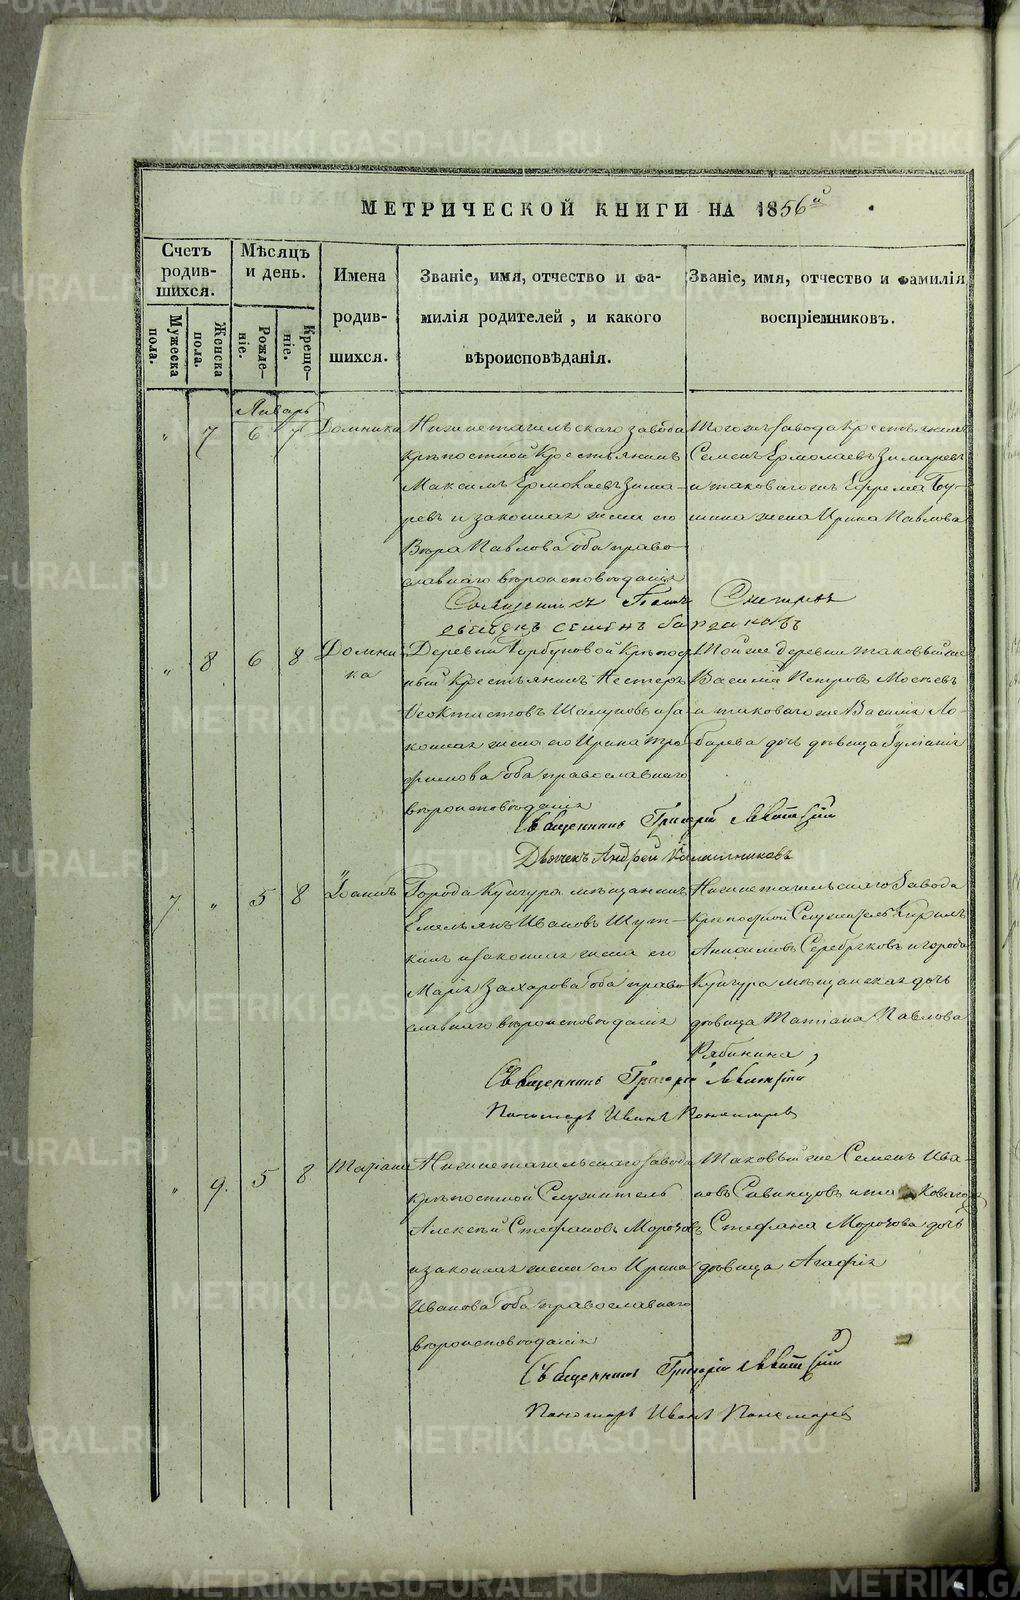 МЕТРИЧЕСКОЙ КНИГИ НА 1856й
Счетъ родив-
шихся.
Мѣсяцъ
и день.
Мужеска пола.
Женска пола.
Рожде-
ніе.
Креще-
ніе.
Имена
родив-
шихся.
Званіе, имя, отчество и фа-
милія родителей, и какого
вѣроисповѣданія.
Званіе, имя, отчество и фамилія
воспріемниковъ.
Январь
" 7 6 7 Домника
Нижнетагильскаго завода
крѣпостной крестьянинъ
Максимъ Ермолаевъ Зима-
ревъ и законная жена его
Вѣра Павлова оба право-
славнаго вѣроисповѣданія
Тогожъ завода крестьянинъ
Семенъ Ермолаевъ Зимаревъ
и таковагожъ Ефрема
жена Ирина Павлова
Священникъ
Семенъ
" 8 6 8 Домни-
ка
Деревни Горбуновой крѣпост-
ный крестьянинъ Нестеръ
Феоктистовъ Шалуновъ и за-
конная жена его Ирина Тро-
фимова оба православнаго
вѣроисповѣданія
Той же деревни таковый же
Василій Петровъ
и таковаго же Василія Ло-
барева дочь дѣвица
Священникъ Григорій Левитскій
Дьячекъ Андрей Калашниковъ
7 " 5 8 Іоаннъ
Города Кунгура мѣщанинъ
Емельянъ Ивановъ Шут-
кинъ и законная жена его
Марія Захарова оба право-
славнаго вѣроисповѣданія
Нижнетагильскаго завода
крѣпостной служитель Кирилъ
Анисимовъ Серебряковъ и города
Кунгура мѣщанская дочь
дѣвица Татіана Павлова
Рябинина,
Священникъ Григорій Левитскій
Пономарь Иванъ Пономаревъ
" 9. 5 8 Татіана
Нижнетагильскаго завода
крѣпостной служитель
Алексѣй Стефановъ Морозовъ
и законная жена его Ирина
Иванова оба православнаго
вѣроисповѣданія
Таковый же Семенъ Ива-
новъ Савинцовъ и таковаго ж
Стефана Морозова дочь
дѣвица Агафія
Священникъ Григорій Левитскій
Пономарь Иванъ Пономаревъ
METRIKI.GASO-URAL.RU